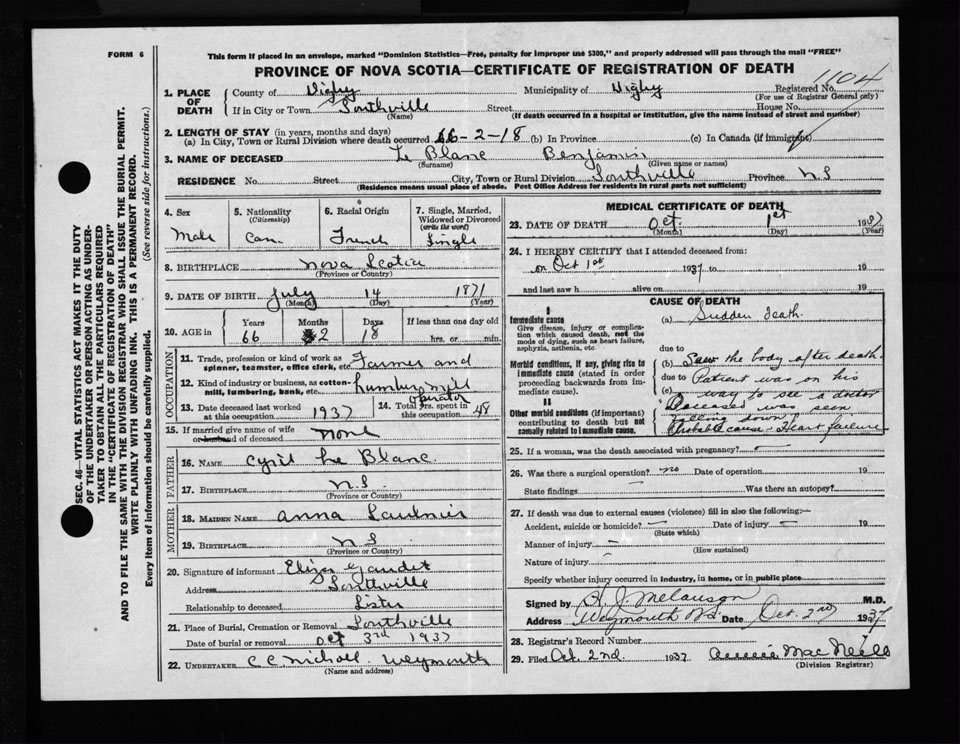 FORM 6
This form if placed in an envelope, marked "Dominion Statistics—Free, penalty for improper use $300," and properly addressed will pass through the mail "FREE"
PROVINCE OF NOVA SCOTIA—CERTIFICATE OF REGISTRATION OF DEATH
1104
1. PLACE OF DEATH
County of Digby Municipality of Digby Registered No.
(For use of Registrar General only)
If in City or Town Southville Street House No.
(Name) (If death occurred in a hospital or institution, give the name instead of street and number)
2. LENGTH OF STAY (in years, months and days)
(a) In City, Town or Rural Division where death occurred 66-2-18 (b) In Province (c) In Canada (if immigrant)
3. NAME OF DECEASED Le Blanc Benjamin
(Surname) (Given name or names)
RESIDENCE No. Street City, Town or Rural Division Southville Province N S
(Residence means usual place of abode. Post Office Address for residents in rural parts not sufficient)
4. Sex
Male
5. Nationality
(Citizenship)
Can.
6. Racial Origin
French
7. Single, Married, Widowed or Divorced
(write the word)
Single
8. BIRTHPLACE Nova Scotia
(Province or Country)
9. DATE OF BIRTH July 14 1871
(Month) (Day) (Year)
10. AGE in
Years Months Days If less than one day old
66 2 18 hrs. or min.
OCCUPATION
11. Trade, profession or kind of work as spinner, teamster, office clerk, etc. Farmer and
12. Kind of industry or business, as cotton-mill, lumbering, bank, etc. Lumber mill
operator
13. Date deceased last worked at this occupation 1937
14. Total yrs. spent in this occupation 48
15. If married give name of wife or husband of deceased None
FATHER
16. NAME Cyril Le Blanc
17. BIRTHPLACE N.S.
(Province or Country)
MOTHER
18. MAIDEN NAME Anna Saulnier
19. BIRTHPLACE N S
(Province or Country)
20. Signature of informant Eliza Gaudet
Address Southville
Relationship to deceased Sister
21. Place of Burial, Cremation or Removal Southville
Date of burial or removal Oct 3rd 1937
22. UNDERTAKER C C Nicholl Weymouth
(Name and address)
MEDICAL CERTIFICATE OF DEATH
23. DATE OF DEATH Oct. 1st 1937
(Month) (Day) (Year)
24. I HEREBY CERTIFY that I attended deceased from:
on Oct 1st 1937 to 19
and last saw h alive on 19
CAUSE OF DEATH
I
Immediate cause
Give disease, injury or complication which caused death, not the mode of dying, such as heart failure, asphyxia, asthenia, etc.
(a) Sudden death.
due to
Morbid conditions, if any, giving rise to immediate cause (stated in order proceeding backwards from immediate cause).
(b) Saw the body after death.
due to Patient was on his
(c) way to see a doctor
II
Other morbid conditions (if important) contributing to death but not causally related to immediate cause.
Deceased was seen
falling down
Probable cause - Heart failure
25. If a woman, was the death associated with pregnancy?
26. Was there a surgical operation? no Date of operation 19
State findings Was there an autopsy?
27. If death was due to external causes (violence) fill in also the following:—
Accident, suicide or homicide? Date of injury 19
(State which)
Manner of injury
(How sustained)
Nature of injury
Specify whether injury occurred in industry, in home, or in public place
Signed by Melanson M.D.
Address Weymouth N.S. Date Oct. 2nd 1937
28. Registrar's Record Number
29. Filed Oct. 2nd. 1937 Annie MacNeill
(Division Registrar)
SEC. 46—VITAL STATISTICS ACT MAKES IT THE DUTY
OF THE UNDERTAKER OR PERSON ACTING AS UNDER-
TAKER TO OBTAIN ALL THE PARTICULARS REQUIRED
IN THE "CERTIFICATE OF REGISTRATION OF DEATH"
AND TO FILE THE SAME WITH THE DIVISION REGISTRAR WHO SHALL ISSUE THE BURIAL PERMIT.
WRITE PLAINLY WITH UNFADING INK. THIS IS A PERMANENT RECORD.
Every item of information should be carefully supplied. (See reverse side for instructions.)